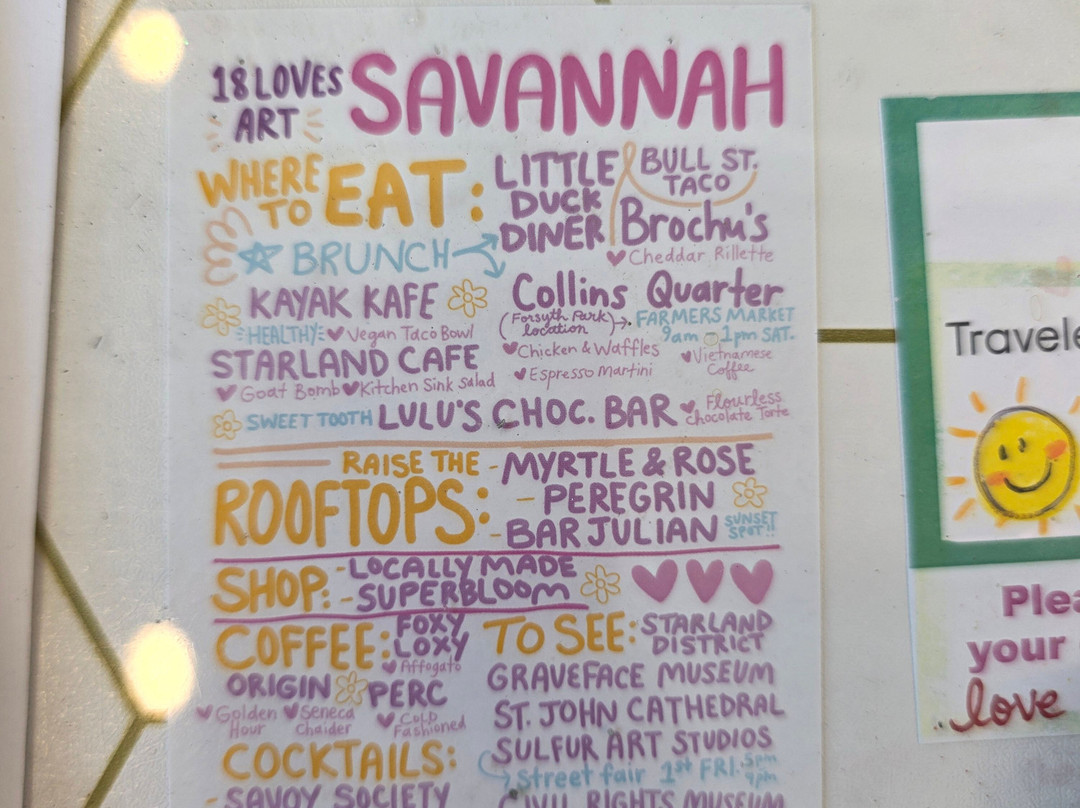 18 LOVES
ART
SAVANNAH
WHERE
TO
EAT:
LITTLE
DUCK
DINER
BULL ST.
TACO
Brochu's
Cheddar Rillette
BRUNCH
KAYAK KAFE
HEALTHY
Vegan Taco Bowl
Collins Quarter
(Forsyth Park
location)
FARMERS MARKET
9am - 1pm SAT.
Chicken & Waffles
Espresso Martini
Vietnamese
Coffee
STARLAND CAFE
Goat Bomb
Kitchen Sink Salad
SWEET TOOTH
LULU'S CHOC. BAR
Flourless
Chocolate Torte
RAISE THE
ROOFTOPS:
- MYRTLE & ROSE
- PEREGRIN
- BAR JULIAN
SUNSET
SPOT!!
SHOP:
- LOCALLY MADE
- SUPERBLOOM
COFFEE:
FOXY
LOXY
Affogato
ORIGIN
PERC
Golden
Hour
Seneca
Chaider
Cold
Fashioned
TO SEE:
STARLAND
DISTRICT
GRAVEFACE MUSEUM
ST. JOHN CATHEDRAL
SULFUR ART STUDIOS
Street fair 1st FRI. 5pm
9pm
CIVIL RIGHTS MUSEUM
COCKTAILS:
- SAVOY SOCIETY
Travele
Plea
your
love